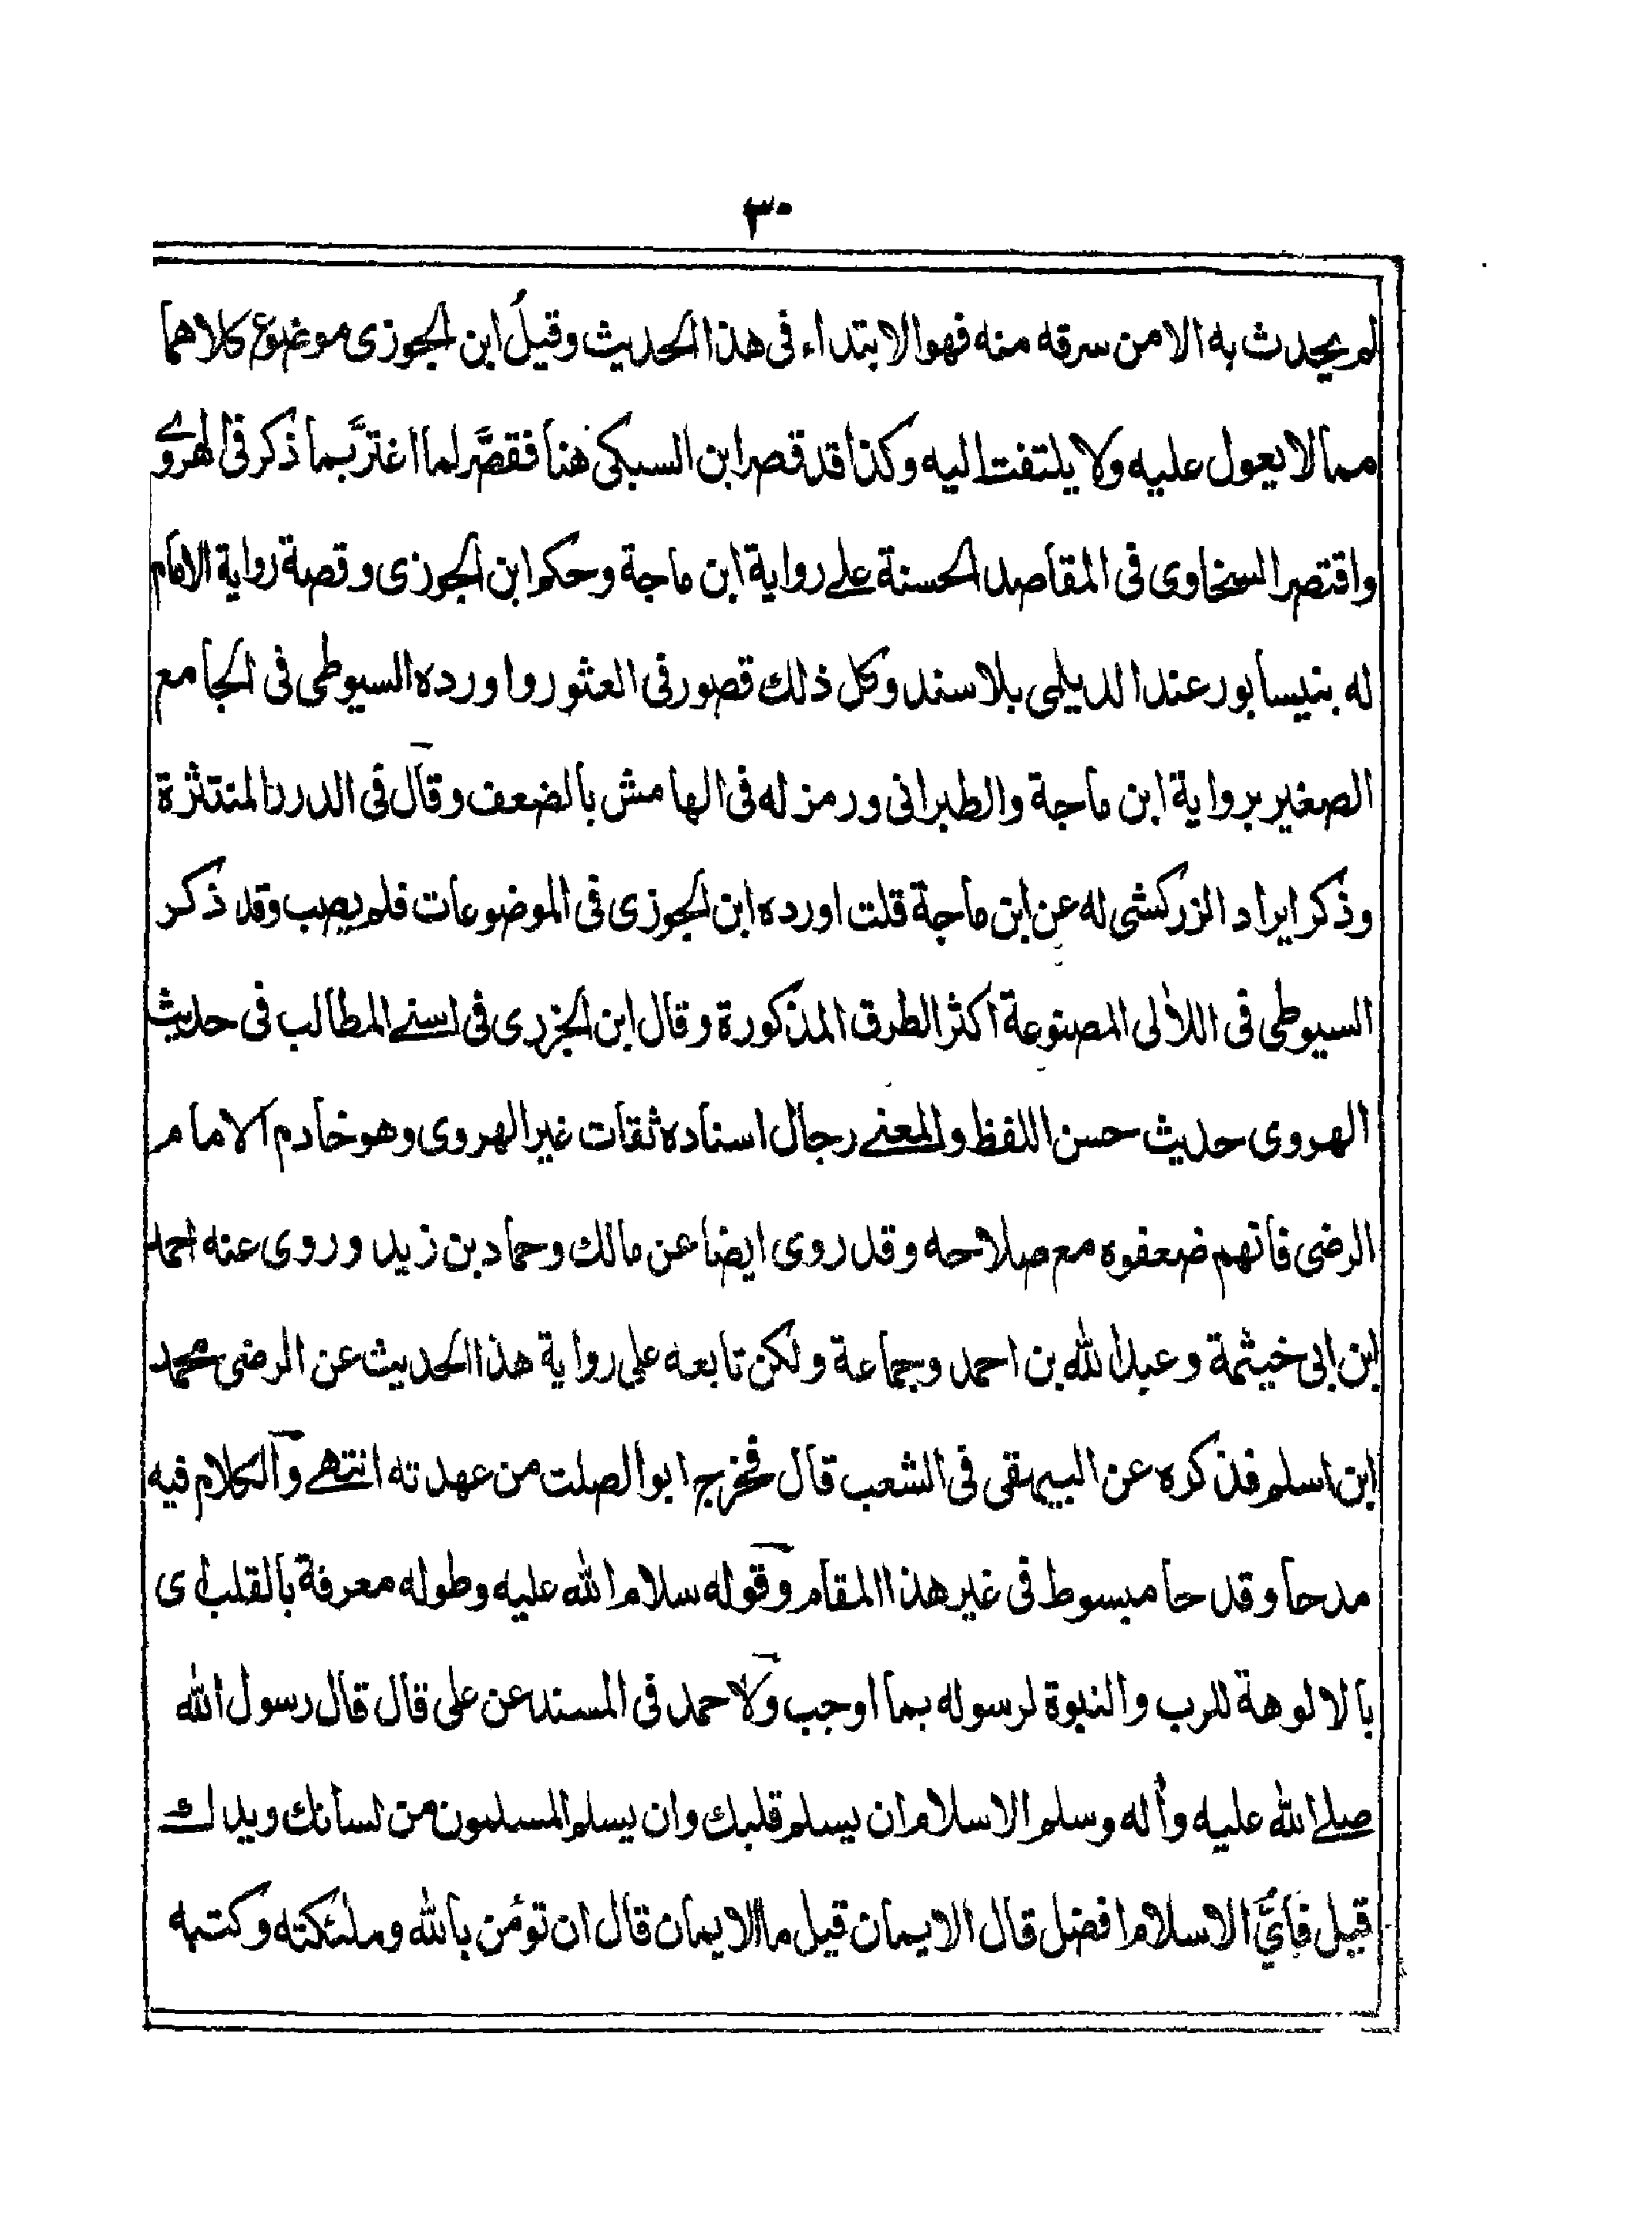 ٣٠
لم يحدث به الا من سرقه منه فهو الابتداء فى هذا الحديث وقيل ابن الجوزى موضوع كلاهما
مما لا يعول عليه ولا يلتفت اليه وكذا قد قصر ابن السبكى هنا فقصَّر لما اغترَّ بما ذكر فى الهروى
واقتصر السخاوى فى المقاصد الحسنة على رواية ابن ماجة وحكم ابن الجوزى وقصة رواية الامام
له بنيسابور عند الديلمى بلا سند وكل ذلك قصور فى العثور واورده السيوطى فى الجامع
الصغير برواية ابن ماجة والطبرانى ورمز له فى الهامش بالضعف وقال فى الدرر المنتثرة
وذكر ايراد الزركشى له عن ابن ماجة قلت اورده ابن الجوزى فى الموضوعات فلم يصب وقد ذكر
السيوطى فى اللالى المصنوعة اكثر الطرق المذكورة وقال ابن الجزرى فى اسنى المطالب فى حديث
الهروى حديث حسن اللفظ والمعنى رجال اسناده ثقات غير الهروى وهو خادم الامام
الرضى فانهم ضعفوه مع صلاحه وقد روى ايضا عن مالك وحماد بن زيد وروى عنه احمد
ابن ابى خيثمة وعبد الله بن احمد وجماعة ولكن تابعه على رواية هذا الحديث عن الرضى محمد
ابن اسلم فذكره عن البيهقى فى الشعب قال فخرج ابو الصلت من عهدته انتهى والكلام فيه
مدحا وقدحا مبسوط فى غير هذا المقام وقوله سلام الله عليه وطوله معرفة بالقلب اى
بالالوهة للرب والنبوة لرسوله بما اوجب ولاحمد فى المسند عن على قال قال رسول الله
صلى الله عليه وأله وسلم الاسلام ان يسلم قلبك وان يسلم المسلمون من لسانك ويدك
قيل فأىُّ الاسلام افضل قال الايمان قيل ما الايمان قال ان تؤمن بالله وملئكته وكتبه